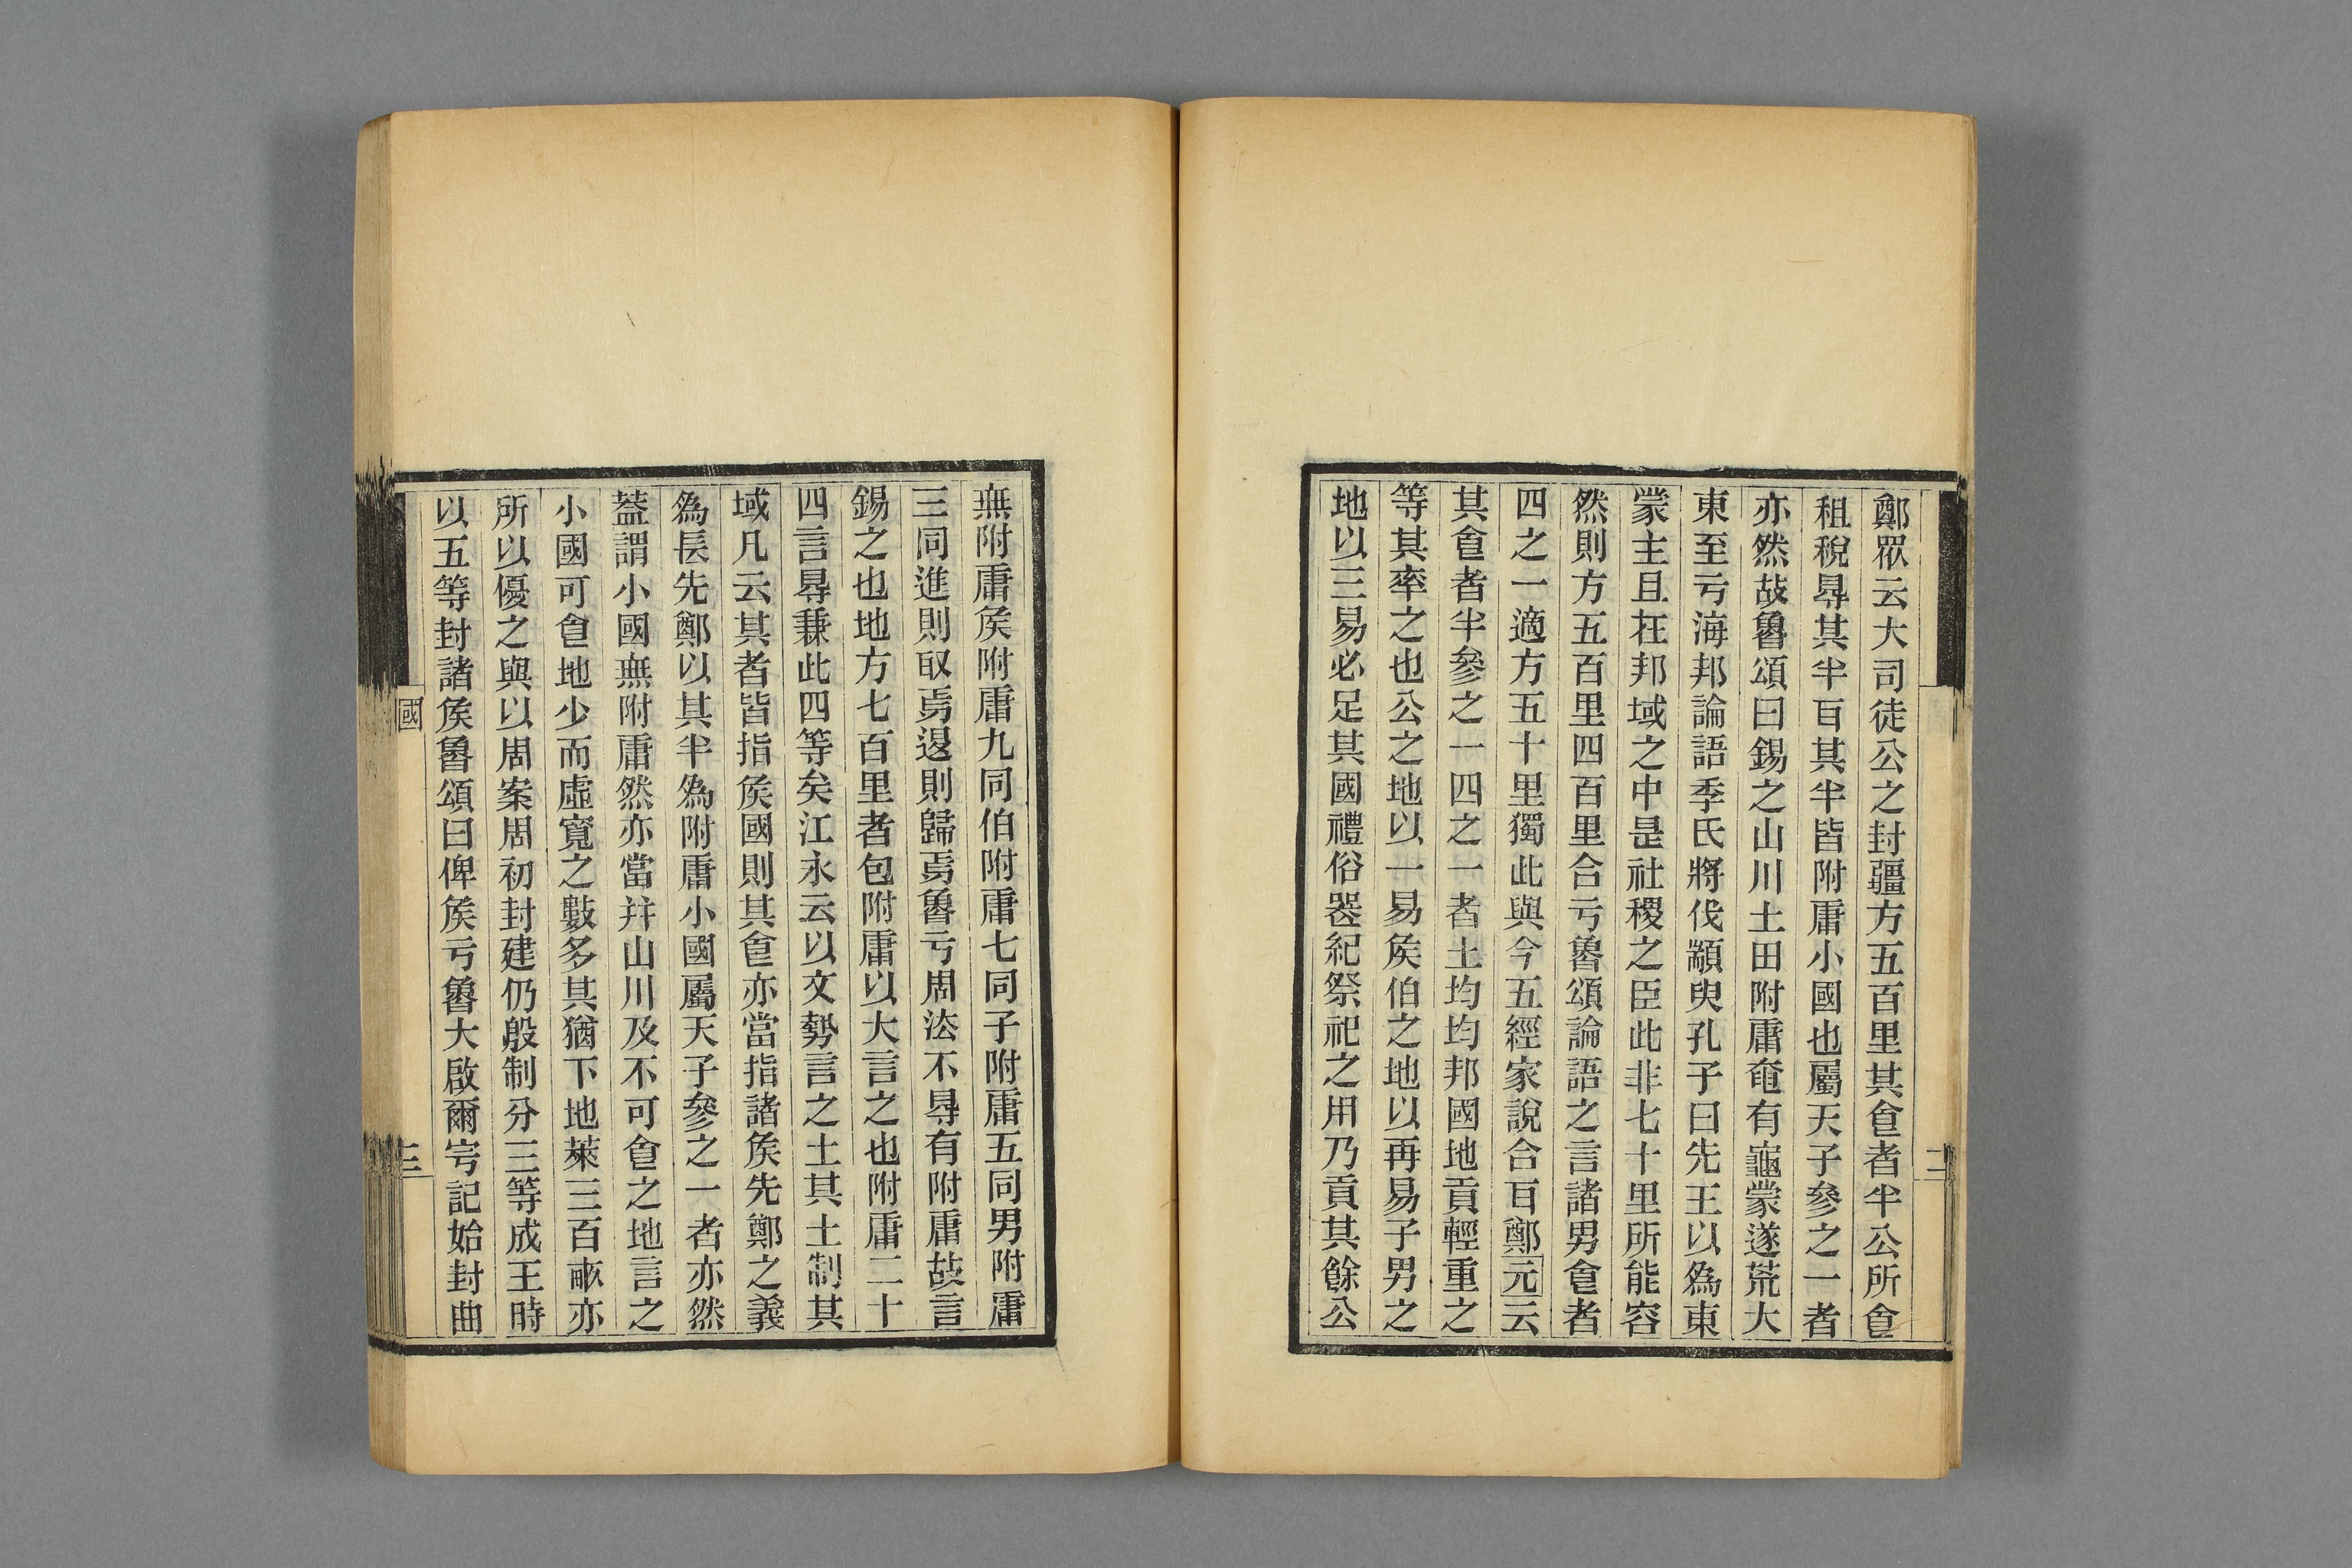 鄭眾云大司徒公之封疆方五百里其𠊊者半公所𠊊
租稅㝵其半百其半皆附庸小國也屬天子參之一者
亦然故魯頌曰錫之山川土田附庸奄有龜蒙遂荒大
東至亏海邦論語季氏將伐顓臾孔子曰先王以為東
蒙主且在邦域之中是社稷之臣此非七十里所能容
然則方五百里四百里合亏魯頌論語之言諸男𠊊者
四之一適方五十里獨此與今五經家說合百鄭元云
其𠊊者半參之一四之一者土均均邦國地貢輕重之
等其率之也公之地以一易矦伯之地以再易子男之
地以三易必足其國禮俗器紀祭祀之用乃貢其餘公
無附庸矦附庸九同伯附庸七同子附庸五同男附庸
三同進則取焉退則歸焉魯亏周法不㝵有附庸故言
錫之也地方七百里者包附庸以大言之也附庸二十
四言㝵兼此四等矣江永云以文勢言之土其土制其
域凡云其者皆指矦國則其𠊊亦當指諸矦先鄭之義
為長先鄭以其半為附庸小國屬天子參之一者亦然
葢謂小國無附庸然亦當并山川及不可𠊊之地言之
小國可𠊊地少而虛寬之數多其猶下地萊三百畞亦
所以優之與以周案周初封建仍殷制分三等成王時
以五等封諸矦魯頌曰俾矦亏魯大啟爾宇記始封曲
國
三
二